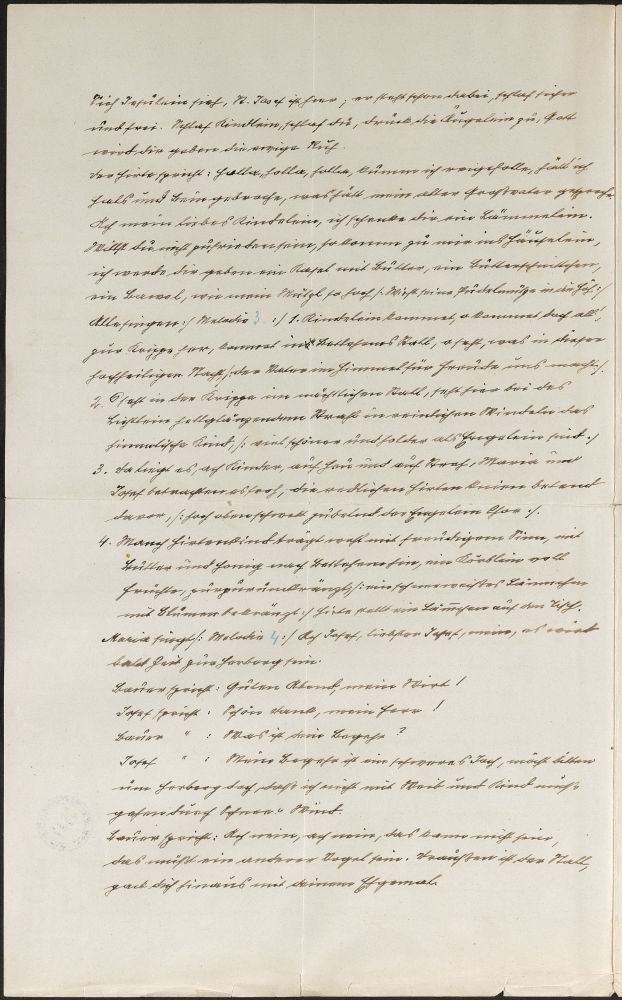 Sieh Jesulein sieh, St. Josef ist hier, er steht schon dabei, schlaf sicher
und frei. Schlaf Kindlein, schlaf du, drück die Äugelein zu, Gott
wird dir geben die ewige Ruh.
Der Hirte spricht: Holla, holla, holla, kumm ich reingeholle, hätt ich
Hals und Bein gebroche, was hätt mein alter Großvater gesproche.
Ach mein liebes Kindelein, ich schenke dir ein Lämmelein.
Willst du nicht zufrieden sein, so komm zu mir ins Häuselein,
ich werde dir geben ein Napel mit Butter, ein Butterschnittchen,
ein, wie mein Mützl so hoch /: Wirft seine Pudelmütze in die Höh :/
Alle singen: /: Melodie 3 :/ 1. Kindelein kommet, o kommet doch all,
zur Krippe her, kommet in Bethlehems Stall, o seht, was in dieser
hochheiligen Nacht /: der Vater im Himmel für Freude uns macht :/
2. O seht in der Krippe im nächtlichen Stall, seht hier bei des
Lichtlein hellglänzendem Strahl in reinlichen Windeln das
himmlische Kind, /: viel schöner und holder als Engelein sind :/
3. Da liegt es, ach Kinder, auf Heu und auf Stroh, Maria und
Josef betrachten es froh, die redlichen Hirten knien betend
davor, /: hoch oben schwebt jubelnd der Engelein Chor :/.
4. Manch Hirtenkind trägt wohl mit freudigem Sinn, mit
Butter und Honig nach Bethlehem hin, ein Körblein voll
Früchte, purpurumkränzt, /: ein schneeweißes Lämmchen
mit Blumen bekränzt :/ Hirte stellt ein Lämmchen auf den Tisch.
Maria singt /: Melodie 4 :/ Ach Josef, liebster Josef, mein, es wird
bald Zeit zur Herberg sein.
Bauer spricht: Guten Abend, mein Wirt!
Josef spricht: Schön Dank, mein Herr!
Bauer " : Was ist dein Begehr?
Josef " : Mein Begehr ist ein schweres Joch, möcht bitten
um Herberg doch, daß ich nicht mit Weib und Kind muß
gehen durch Schnee u. Wind.
Bauer spricht: Ach nein, ach nein, das kann nicht sein,
das muß ein anderer Vogel sein. Draußen ist der Stall,
pack dich hinaus mit deinem Ehgemal.